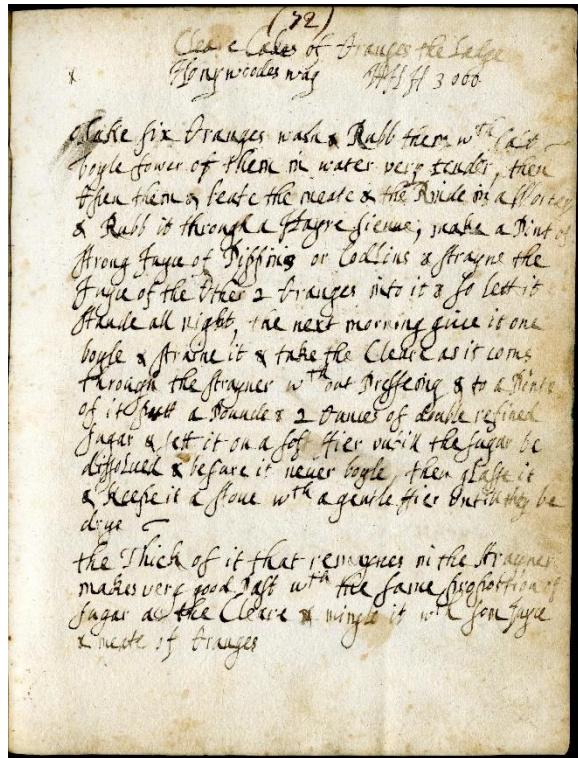 (72)
Cleare Cakes of Oranges the Ladge
x Honywoodes way
Take six Oranges wash & Rubb them wth Salt
boyle fower of them in water very tender, then
then them & beate the meate & the Rinde in a Morter
& Rubb it through a Hayre sieuue, make a Pint of
strong Juyce of Pippins or Codlins & strayne the
Juyce of the Other 2 Oranges into it & so lett it
stande all night, the next morning giue it one
boyle & straine it & take the Cleare as it coms
through the strayner wthout Presseing & to a Pinte
of it putt a Pounde & 2 Ounces of double refined
sugar & sett it on a soft fier vntill the sugar be
dissolued & besure it neuer boyle, then glasse it
& Keepe it a stoue wth a gentle fier Untill they be
drye
the Thick of it that remaynes in the strayner
makes very good Past wth the same proportion of
sugar as the Cleare & mingle it wth som Juyce
& meate of Oranges